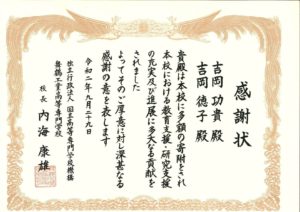 感謝状
吉岡 功貴 殿
吉岡 德子 殿
貴殿は本校に多額の寄附をされ
本校における教育支援・研究支援
の充実及び進展に多大なる貢献を
されました
よってそのご厚意に対し深甚なる
感謝の意を表します
令和二年九月二十九日
独立行政法人 国立高等専門学校機構
舞鶴工業高等専門学校
校長 内海 康雄